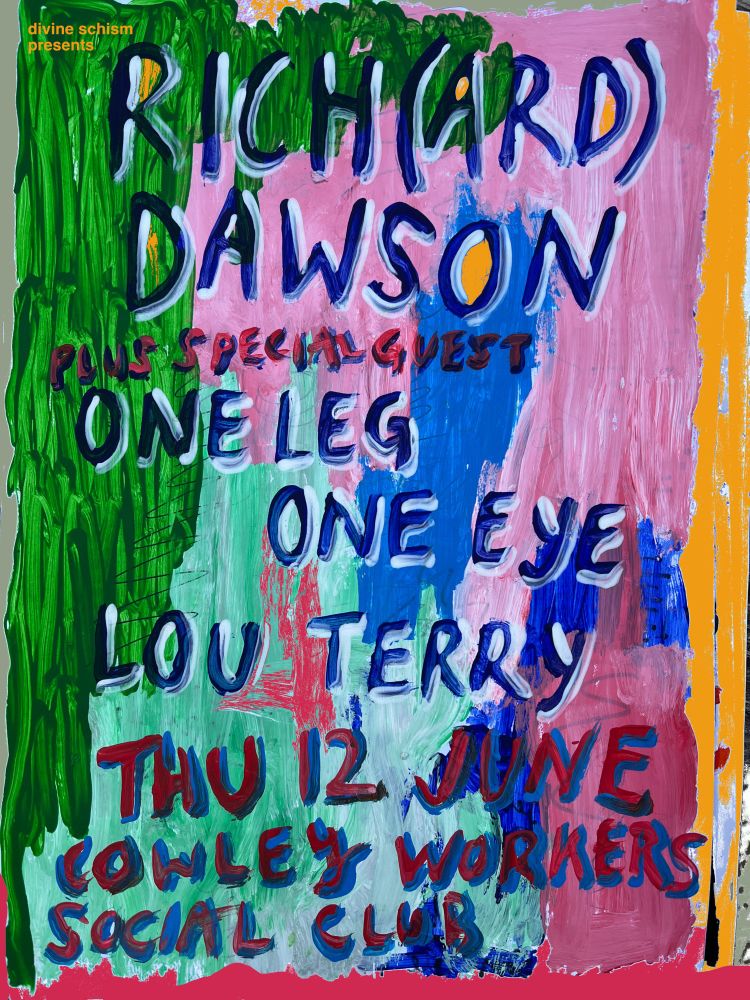 divine schism
presents
RICH(ARD)
DAWSON
PLUS SPECIAL GUEST
ONE LEG
ONE EYE
LOU TERRY
THU 12 JUNE
COWLEY WORKERS
SOCIAL CLUB